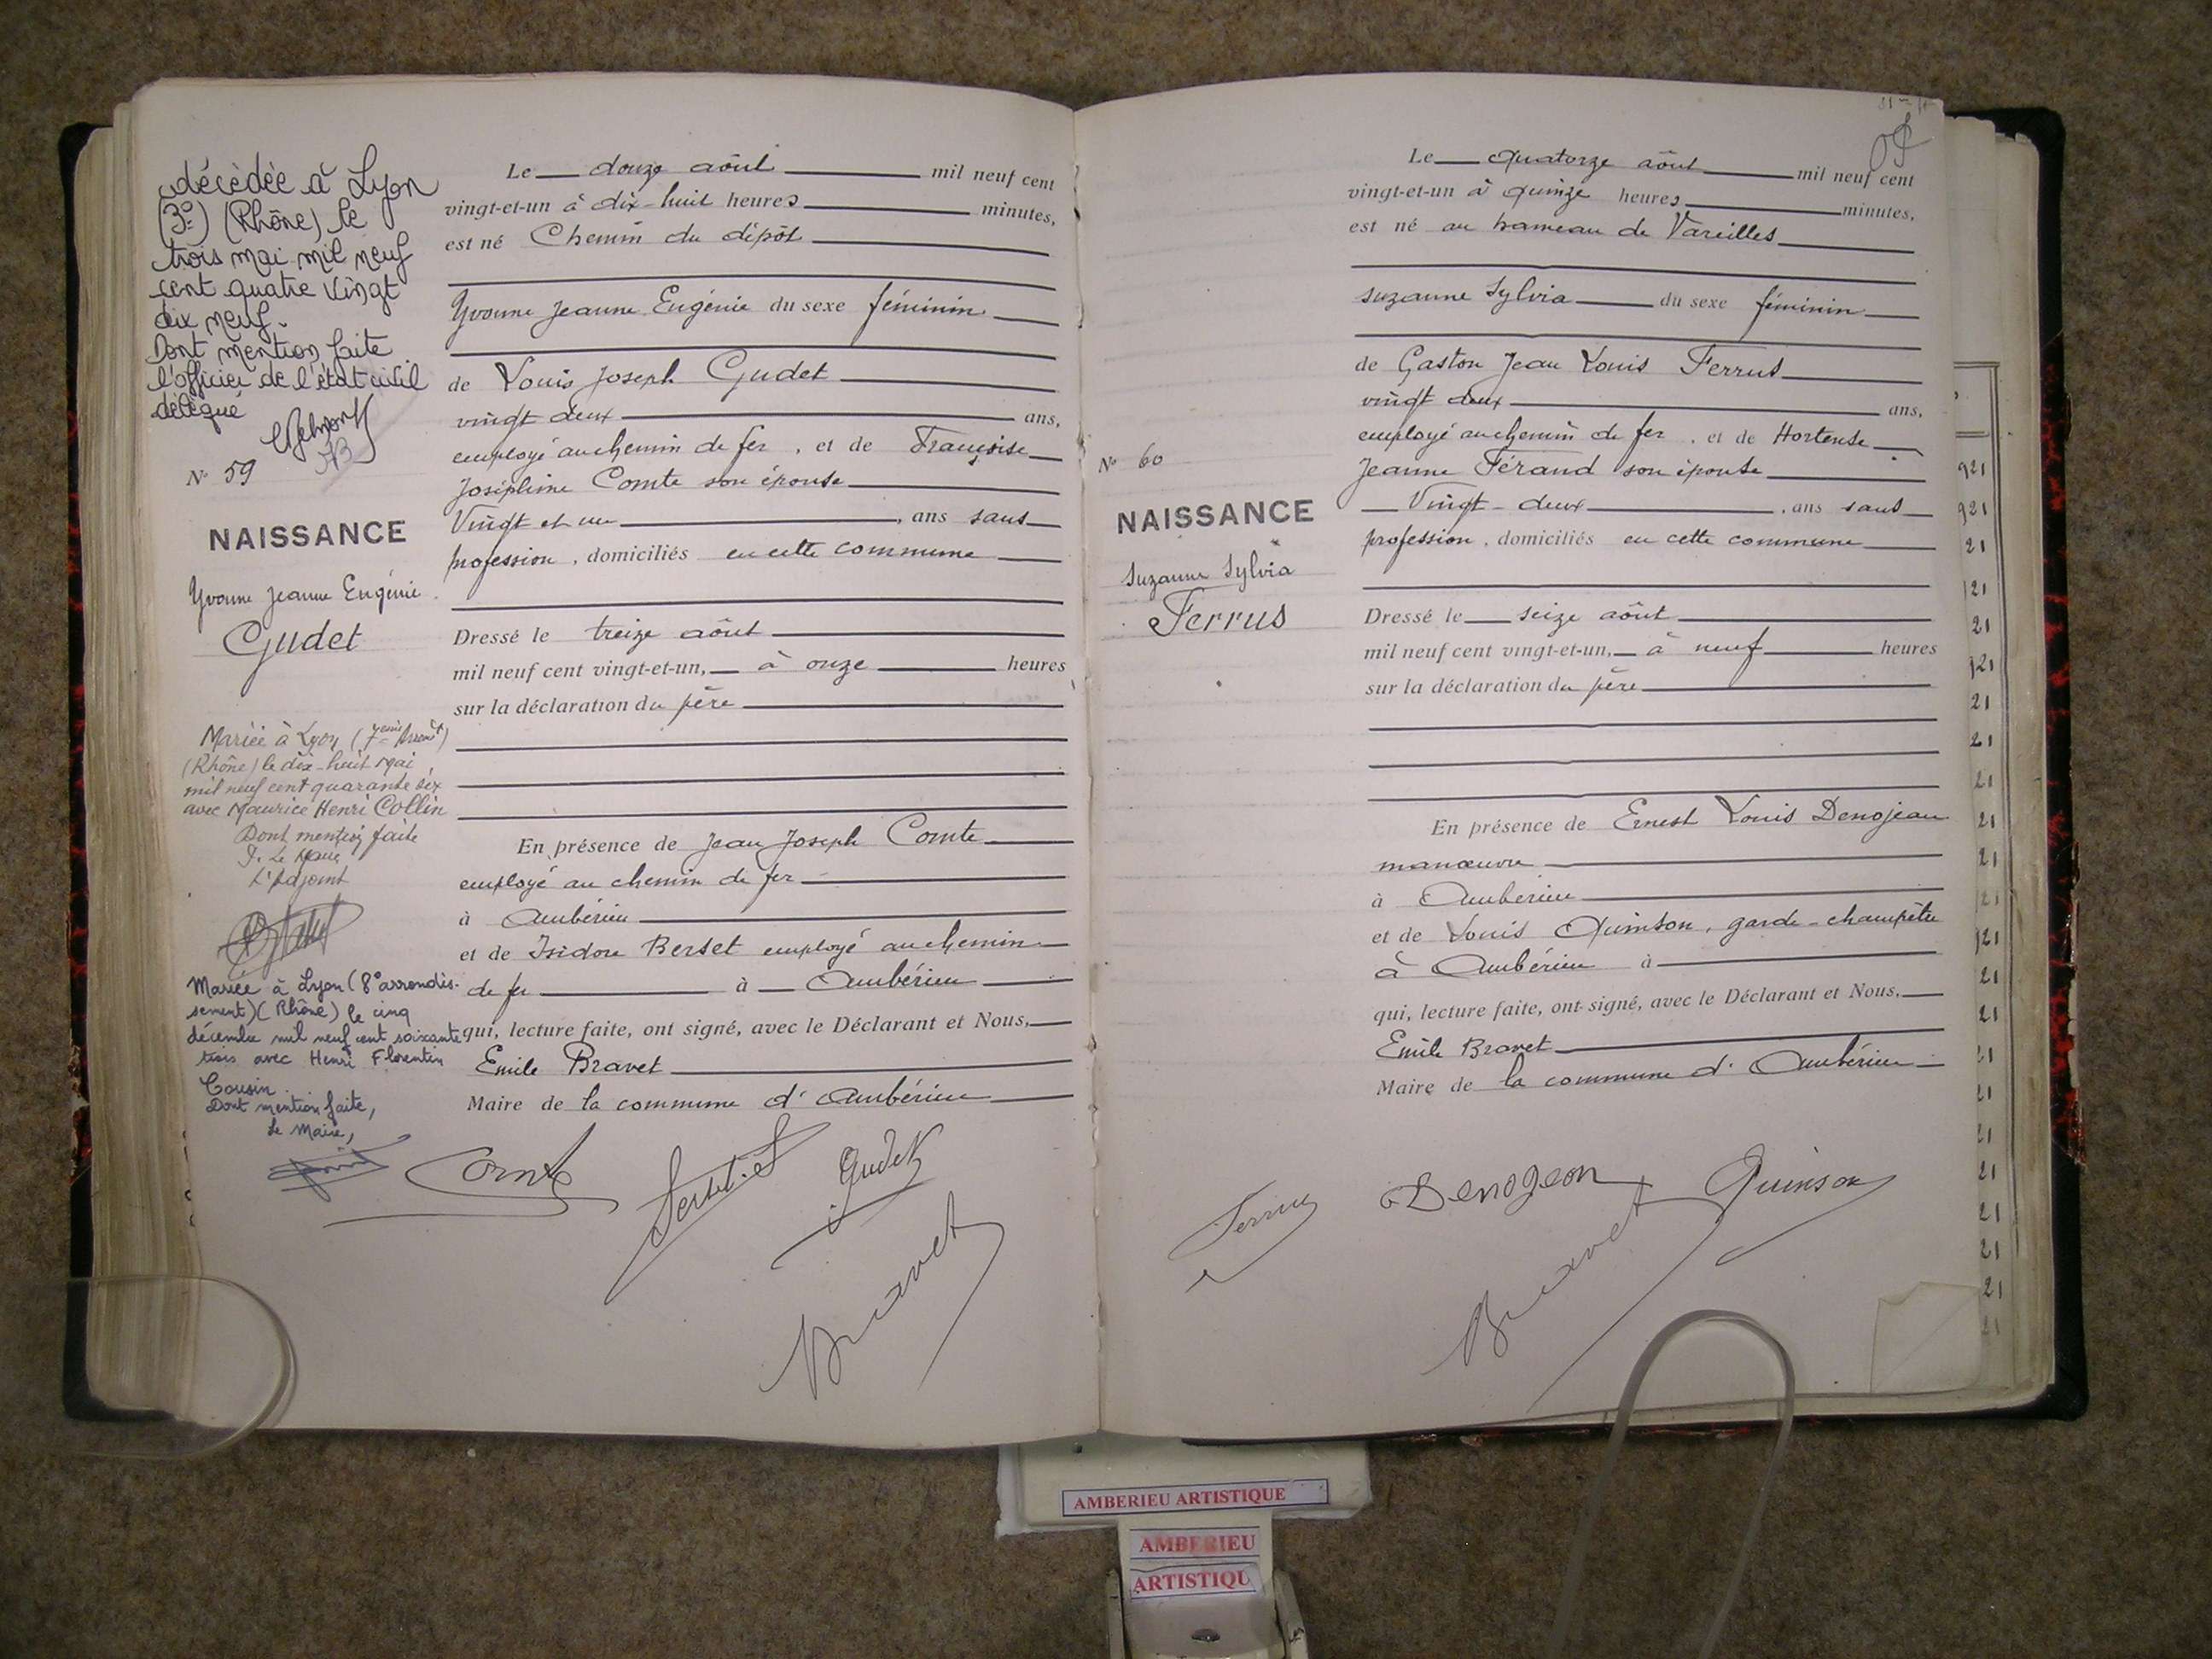 décédée à Lyon
(3e) (Rhône) le
trois mai mil neuf
cent quatre vingt
dix neuf.
Dont mention faite
l'officier de l'état civil
délégué
N° 59
NAISSANCE
Yvonne Jeanne Eugénie
Gudet
Mariée à Lyon (7eme Arremt)
(Rhône) le dix-huit Mai
mil neuf cent quarante six
avec Maurice Henri Collin
Dont mention faite
P. Le Maire
L'Adjoint
Mariée à Lyon (8e arrondis-
sement) (Rhône) le cinq
décembre mil neuf cent soixante
trois avec Henri Florentin
Cousin.
Dont mention faite,
Le Maire,
Le douze août mil neuf cent
vingt-et-un à dix-huit heures minutes,
est né Chemin du dépôt
Yvonne Jeanne Eugénie du sexe féminin
de Louis Joseph Gudet
vingt deux ans,
employé au chemin de fer, et de Françoise
Joséphine Comte son épouse
Vingt et un, ans sans
profession, domiciliés en cette commune
Dressé le treize août
mil neuf cent vingt-et-un, à onze heures
sur la déclaration du père
En présence de Jean Joseph Comte
employé au chemin de fer
à Ambérieu
et de Isidore Berset employé au chemin
de fer à Ambérieu
qui, lecture faite, ont signé, avec le Déclarant et Nous,
Emile Bravet
Maire de la commune d'Ambérieu
Comte
Gudet
Bravet
N° 60
NAISSANCE
Suzanne Sylvia
Ferrus
Le quatorze août mil neuf cent
vingt-et-un à quinze heures minutes,
est né au hameau de Vareilles
Suzanne Sylvia du sexe féminin
de Gaston Jean Louis Ferrus
vingt deux ans,
employé au chemin de fer, et de Hortense
Jeanne Férand son épouse
Vingt-deux, ans sans
profession, domiciliés en cette commune
Dressé le seize août
mil neuf cent vingt-et-un, à neuf heures
sur la déclaration du père
En présence de Ernest Louis Denojean
manœuvre
à Ambérieu
et de Louis Quinson, garde-champêtre
à Ambérieu à
qui, lecture faite, ont signé, avec le Déclarant et Nous,
Emile Bravet
Maire de la commune d'Ambérieu
Ferrus
Denogeon
Quinson
Bravet
921
921
21
121
21
921
21
21
21
21
21
121
121
21
21
21
21
21
21
21
21
21
21
AMBERIEU ARTISTIQUE
AMBERIEU
ARTISTIQU